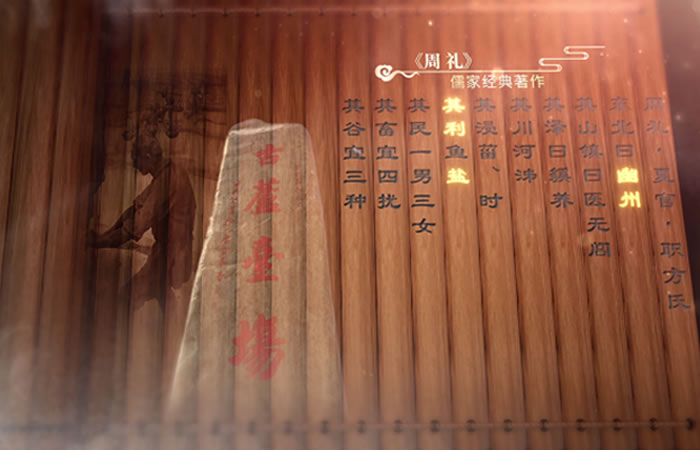 《周礼》
儒家经典著作
周礼·夏官·职方氏
东北曰幽州
其山镇曰医无闾
其泽曰貕养
其川河泲
其浸菑、时
其利鱼盐
其民一男三女
其畜宜四扰
其谷宜三种
古蘆臺場